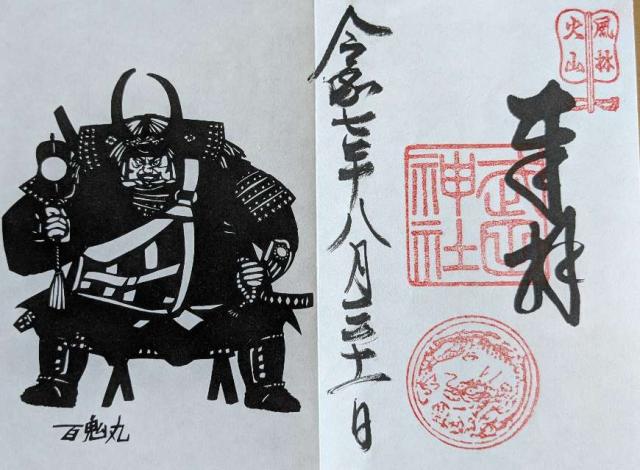 風林
火山
奉拝
武田
神社
令和七年八月三十一日
百鬼丸